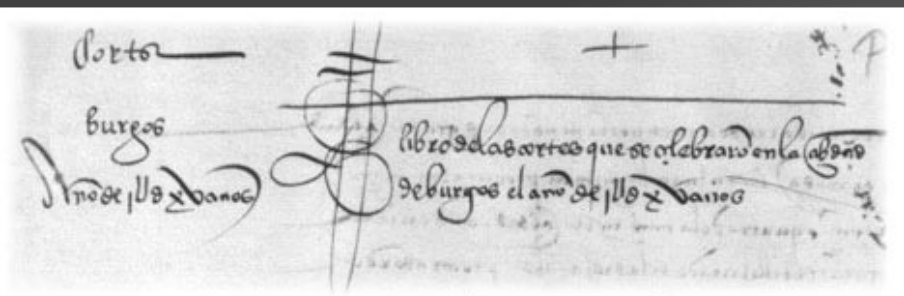 Cortes
burgos
Año de jUd xv años
libro de las cortes que se çelebrarõ en la çibdad
de burgos el año de jUd xv años